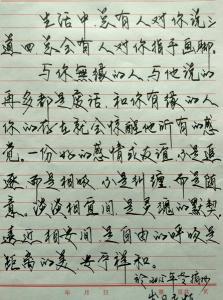 生活中,总有人对你说三
道四,总会有人对你指手画脚。
与你无缘的人,与他说的
再多都是废话,和你有缘的人
你的存在就会惊醒他所有的感
觉。一份好的感情或友谊,不是追
逐,而是相吸,不是纠缠,而是随
意。淡淡相宜间,是灵魂的默契
远近相安间,是自由的呼吸,是
距离的美,安宁祥和
年 月 日